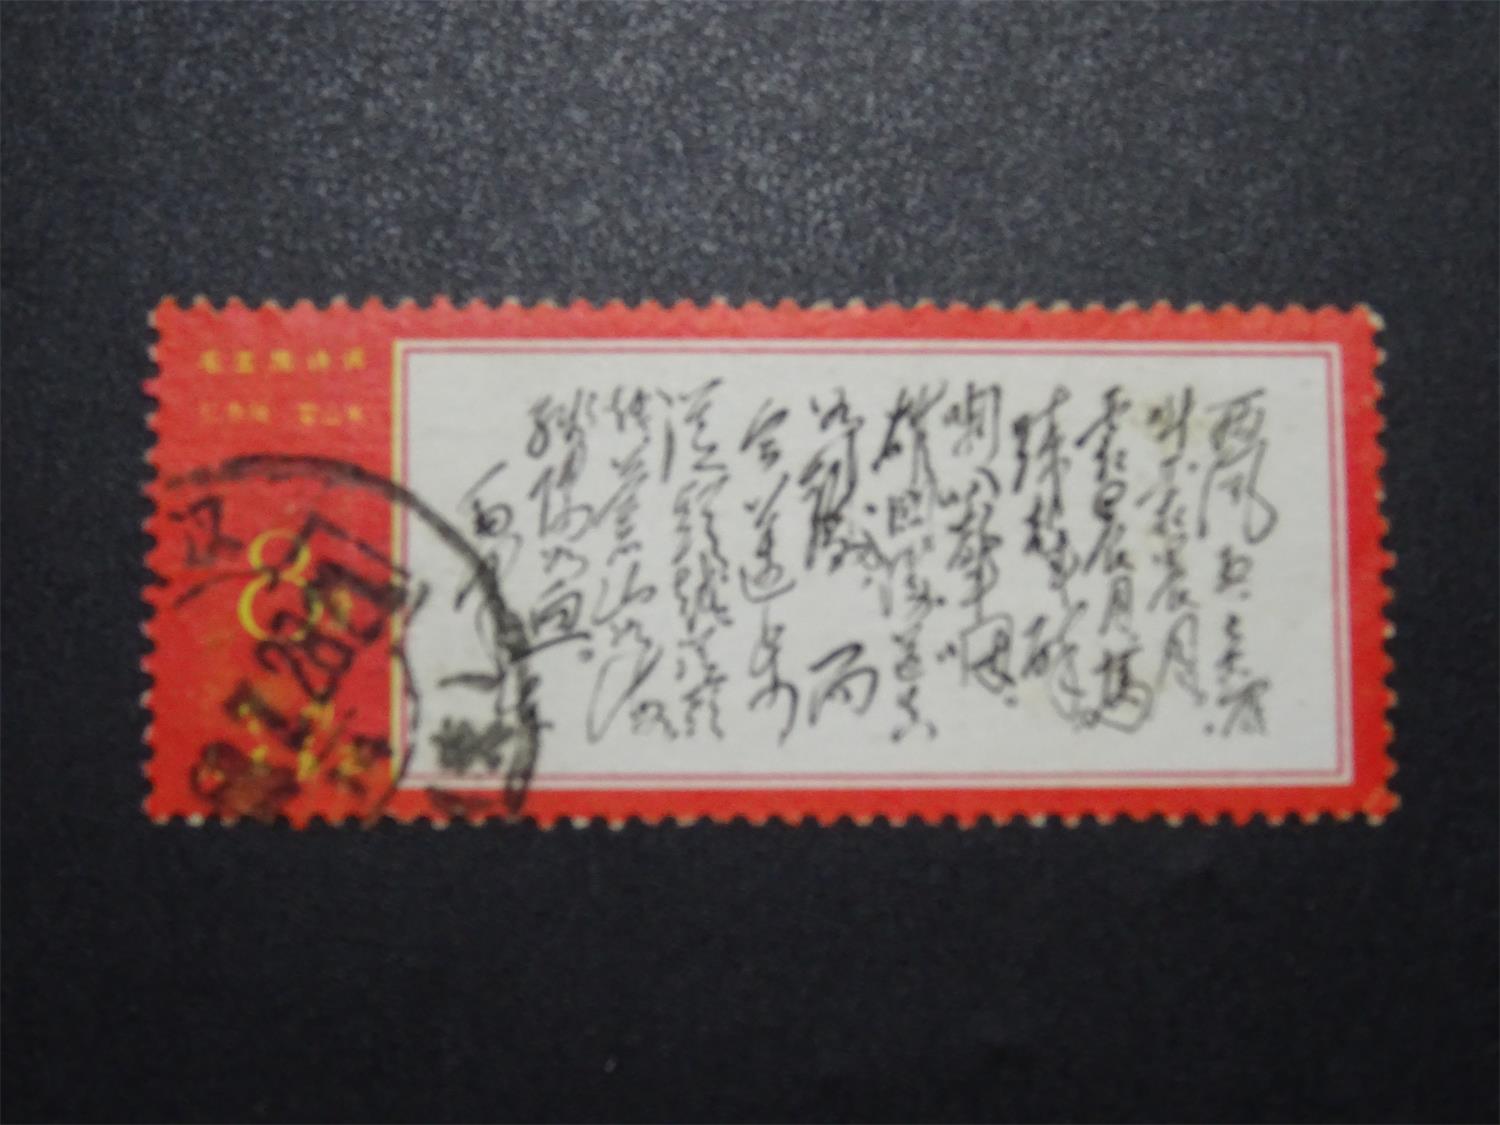 毛主席诗词
忆秦娥 娄山关
8
汉
西风烈,长空雁
叫霜晨月。
霜晨月,马
蹄声碎,
喇叭声咽。
雄关漫道真
如铁,而
今迈步
从头越。从头越,
苍山如海,
残阳如血。
毛泽东